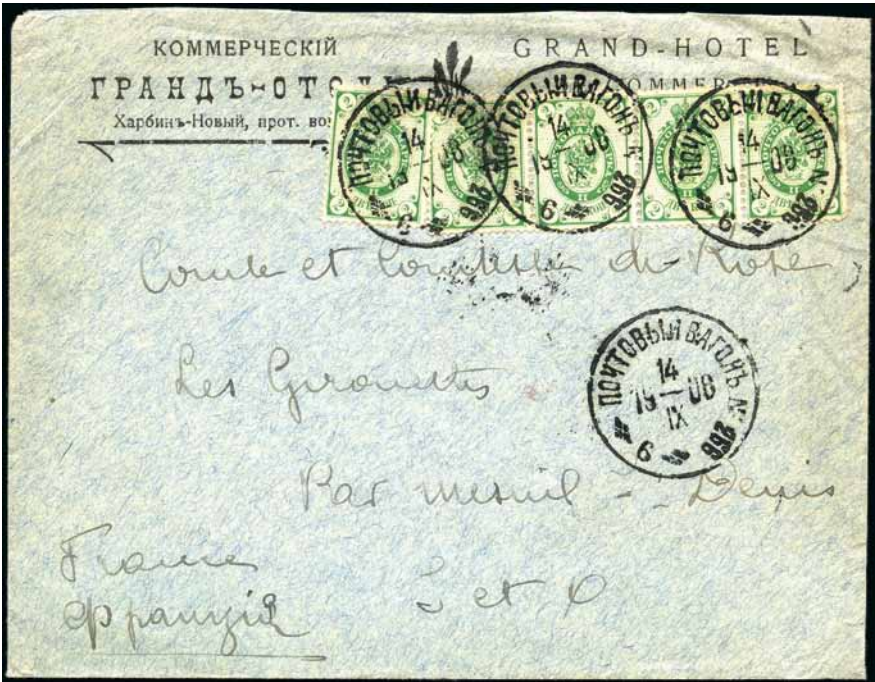 КОММЕРЧЕСКІЙ
ГРАНДЪ-ОТЕЛЬ
Харбинъ-Новый, прот.
GRAND-HOTEL
COMMER
ПОЧТОВЫЙ ВАГОНЪ № 266
14
19 — 08
IX
6
ПОЧТОВЫЙ ВАГОНЪ № 266
14
19 — 08
IX
6
ПОЧТОВЫЙ ВАГОНЪ № 266
14
19 — 08
IX
6
Comte et Comtesse de Rose
Les Girouettes
ПОЧТОВЫЙ ВАГОНЪ № 266
14
19 — 08
IX
6
Par Mesnil - Denis
France
S et O
Франція